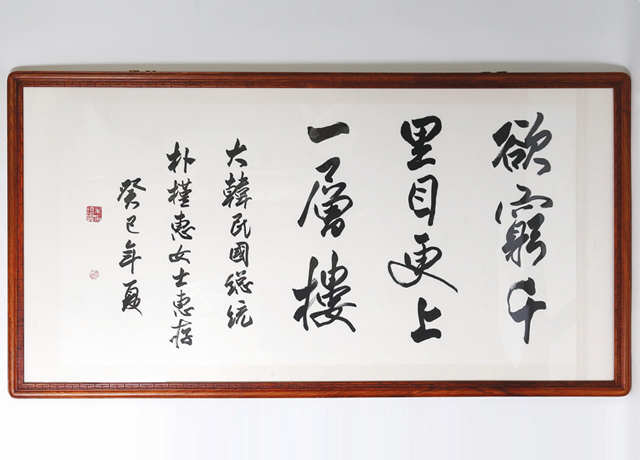 欲窮千
里目更上
一層樓
大韓民國總統
朴槿惠女士惠存
癸巳年夏